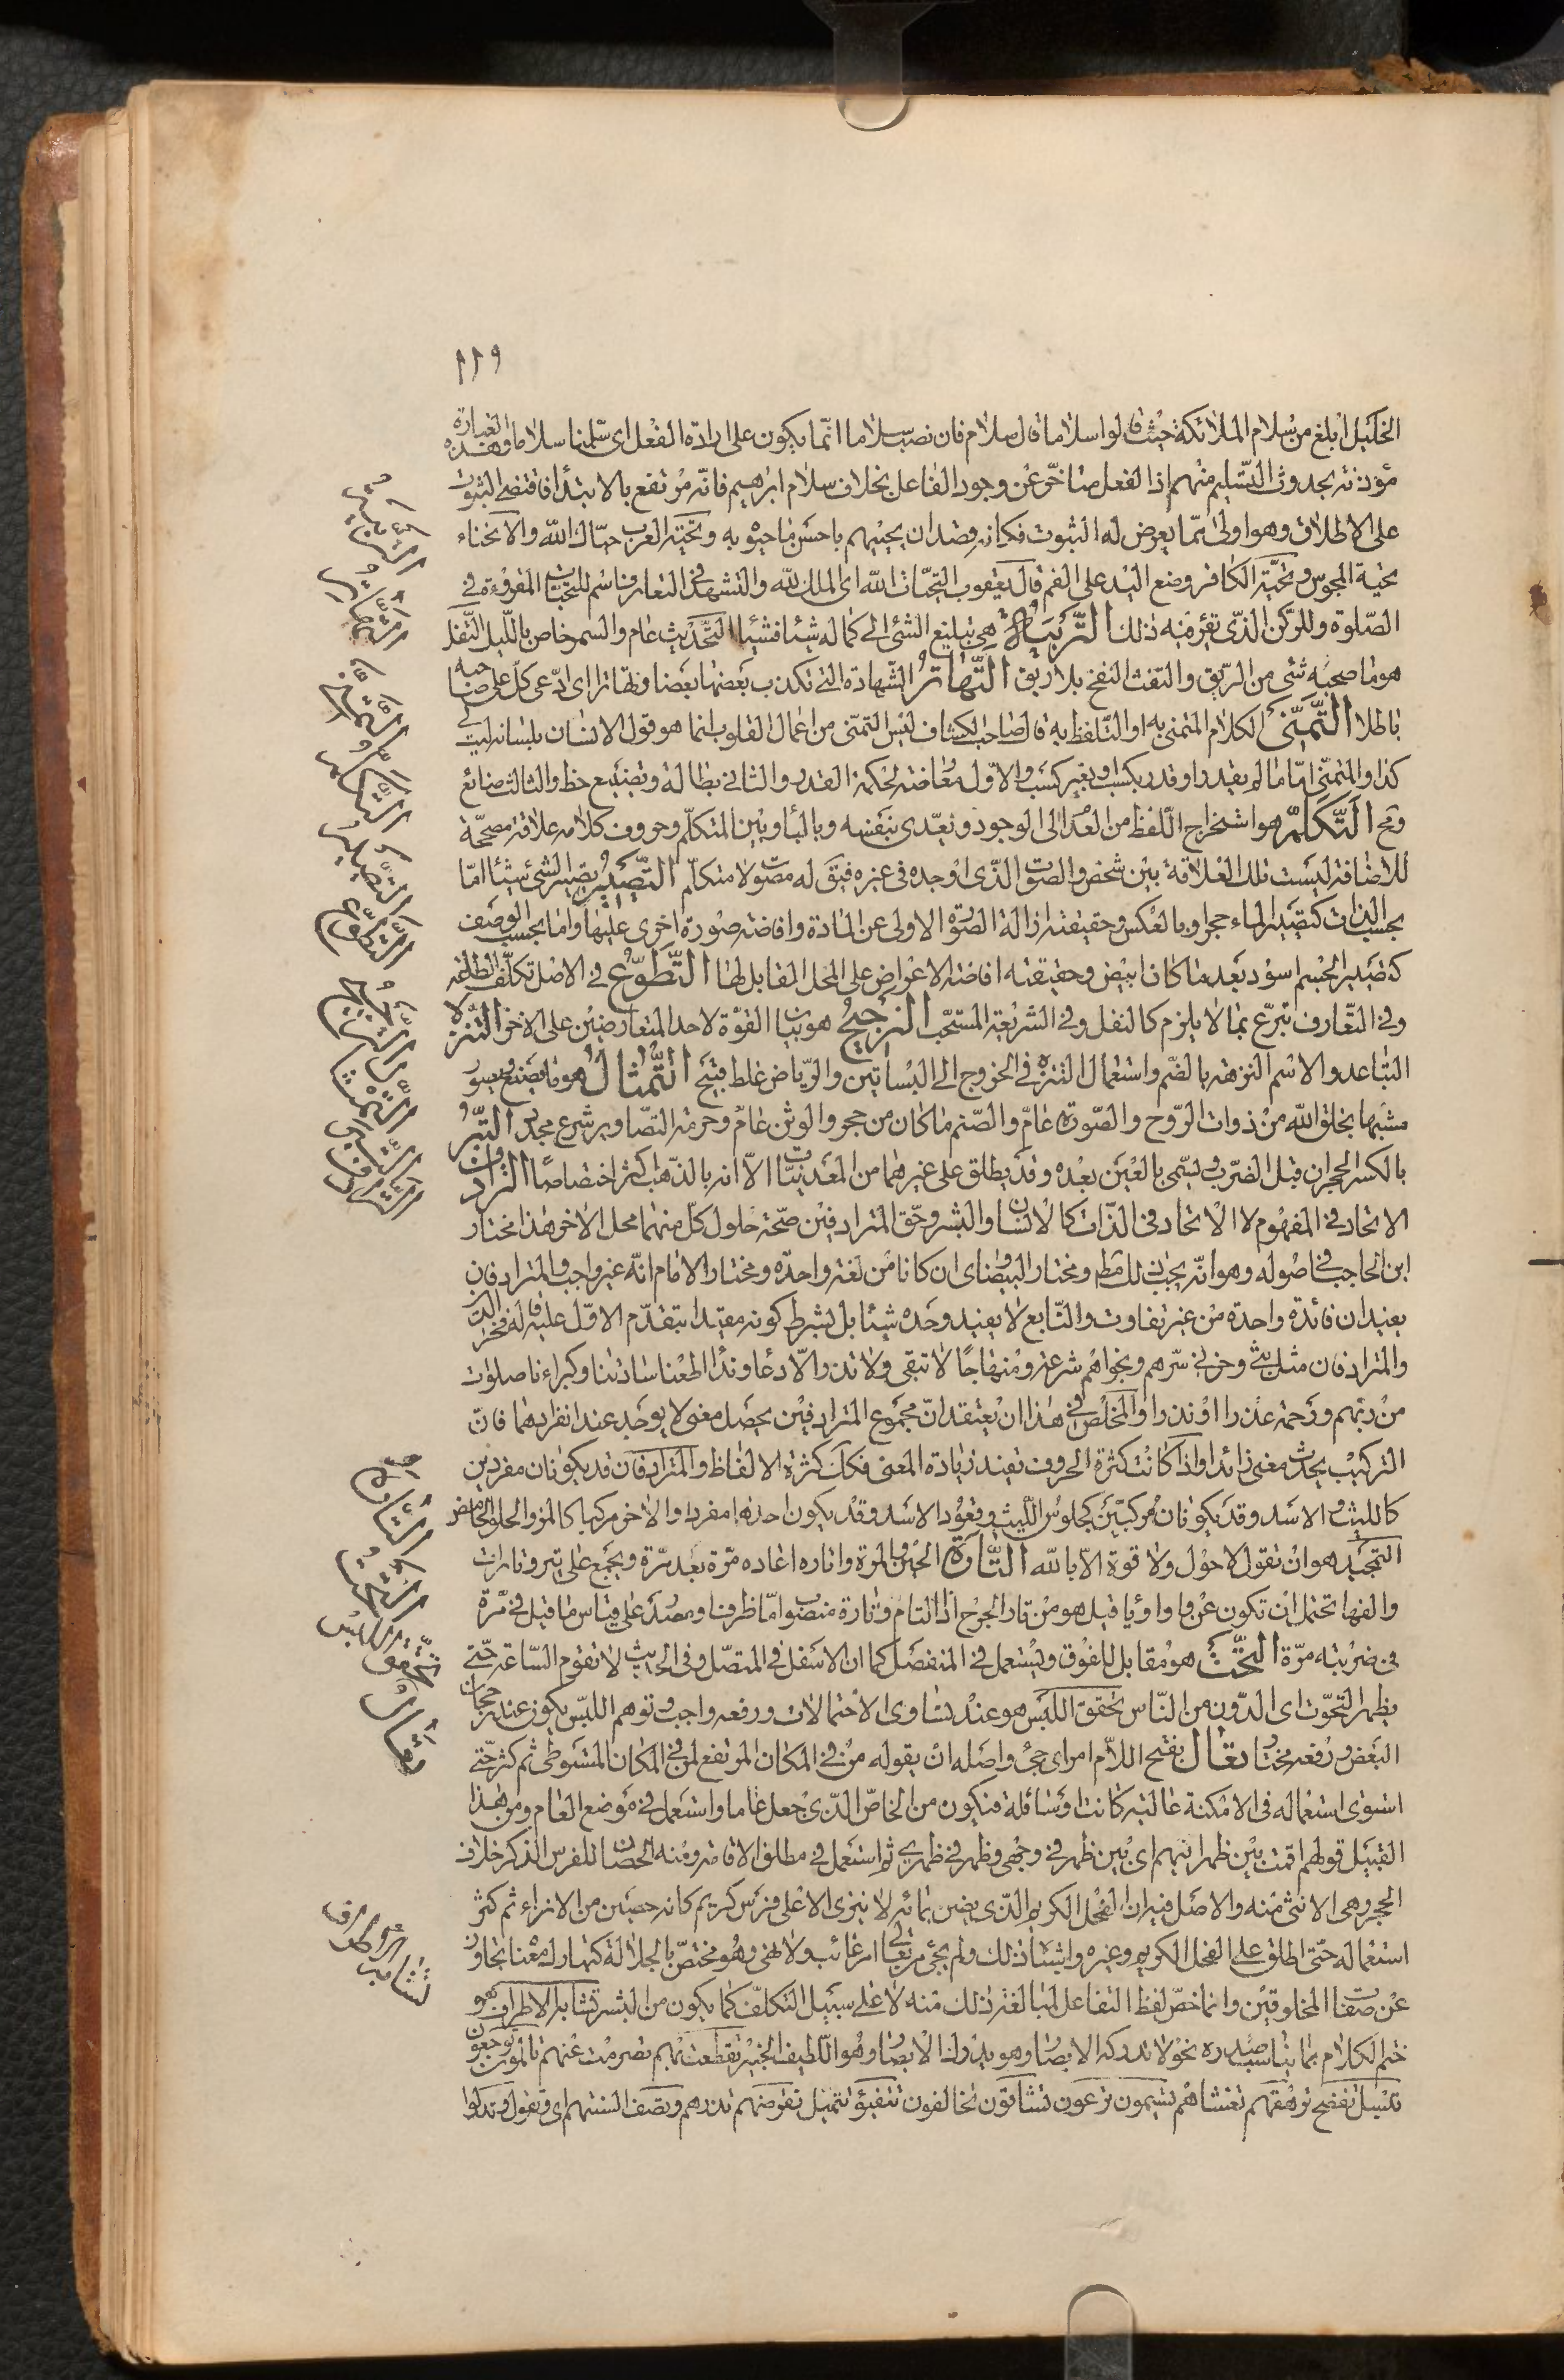 ١١٩
الخليل ابلغ من سلام الملائكة حيث قالوا سلاما قال سلام فان نصب سلاما انما يكون على ارادة الفعل اى سلمنا سلاما وهذه العبارة
مؤذنة بحدوث التسليم منهم اذ الفعل متأخر عن وجود الفاعل بخلاف سلام ابرهيم فانه مرتفع بالابتداء فاقتضى الثبوت
على الاطلاق وهو اولى مما يعرض له الثبوت فكانه قصد ان يحييهم باحسن ما حيوه به وتحية العرب حياك الله والانحناء
تحية المجوس وتحية الكافر وضع اليد على الفم قال يعقوب التحيات لله اى الملك لله والتشهد فى التعارف اسم للتحيات المقروءة فى
الصلوة وللركن الذى تقرء فيه ذلك التربية هى تبليغ الشئ الى كماله شيئا فشيئا التحديث عام والسمر خاص بالليل التفل
هو ما صحبه شئ من الريق والنفث النفخ بلا ريق التهاتر الشهادة التى تكذب بعضها بعضا وتهاترا اى ادعى كل على صاحبه
باطلا التمنى الكلام المتمنى به او التلفظ به قال صاحب الكشاف ليس التمنى من اعمال القلوب انما هو قول الانسان بلسانه ليت لى
كذا والمتمنى اما ما لم يقدر او قدر بكسب او بغير كسب والاول معارضة لحكمة القدر والثانى بطالة وتضييع حظ والثالث ضائع
ومح التكلم هو استخراج اللفظ من العدم الى الوجود ويعدى بنفسه وبالباء وبين المتكلم وحروف كلامه علاقة مصححة
للاضافة ليست تلك العلاقة بين شخص والصوت الذى اوجده فى غيره فيق له مصوت لا متكلم التصيير تصيير الشئ شيئا اما
بحسب الذات كتصيير الماء حجرا وبالعكس وحقيقته ازالة الصورة الاولى عن المادة وافاضة صورة اخرى عليها واما بحسب الوصف
كتصيير الجسم اسود بعد ما كان ابيض وحقيقته افاضة الاعراض على المحل القابل لها التطوع فى الاصل تكلف الطاعة
وفى التعارف تبرع بما لا يلزم كالنفل وفى الشريعة المستحب الترجيح هو بيان القوة لاحد المتعارضين على الاخر التنزه
التباعد والاسم النزهة بالضم واستعمال التنزه فى الخروج الى البساتين والرياض غلط قبيح التمثال هو ما يصنع ويصور
مشبها بخلق الله من ذوات الروح والصورة عام والصنم ما كان من حجر والوثن عام وحرمة التصاوير شرع مجدد التبر
بالكسر الحجران قبل الضرب ويسمى بالعين بعده وقد يطلق على غيرهما من المعدنيات الا انه بالذهب اكثر اختصاصا الترادف
الاتحاد فى المفهوم لا الاتحاد فى الذات كالانسان والبشر وحق المترادفين صحة حلول كل منهما محل الاخر هذا مختار
ابن الحاجب فى اصوله وهو انه يجب ذلك مط ومختار البيضاوى ان كانا من لغة واحدة ومختار الامام انه غير واجب والمترادفان
يفيدان فائدة واحدة من غير تفاوت والتابع لا يفيد وحده شيئا بل بشرط كونه مقيدا بتقدم الاول عليه قاله فخر الدين
والمترادفان مثل بثى وحزنى سرهم ونجواهم شرعة ومنهاجا لا تبقى ولا تذر الا دعاء ونداء اطعنا سادتنا وكبراءنا صلوات
من ربهم ورحمة عذرا او نذرا والمخلص فى هذا ان يعتقد ان مجموع المترادفين يحصل معنى لا يوجد عند انفرادهما فان
التركيب يحدث معنى زائدا واذا كانت كثرة الحروف تفيد زيادة المعنى فكك كثرة الالفاظ والمترادفان قد يكونان مفردين
كالليث والاسد وقد يكونان مركبين كجلوس الليث وقعود الاسد وقد يكون احدهما مفردا والاخر مركبا كالمز والحلو الحامض
التمجيد هو ان تقول لا حول ولا قوة الا بالله التارة الحين والمرة واتاره اعاده مرة بعد مرة ويجمع على تير وتارات
والفها تحتمل ان تكون عن واو او ياء قيل هو من تار الجرح اذا التام وتارة منصوب اما ظرفا او مصدر على قياس ما قيل فى مرة
فى ضربته مرة التحت هو مقابل للفوق ويستعمل فى المنفصل كما ان الاسفل فى المتصل وفى الحديث لا تقوم الساعة حتى
يظهر التحوت اى الدون من الناس تحقق اللبس هو عند تساوى الاحتمالات ورفعه واجب وتوهم اللبس يكون عند رجحان
البعض ورفعه مختار تعال بفتح اللام امر اى جئ واصله ان يقوله من فى المكان المرتفع لمن فى المكان المستوطى ثم كثر حتى
استوى استعماله فى الامكنة عالية كانت او سافلة فيكون من الخاص الذى جعل عاما واستعمل فى موضع العام ومن هذا
القبيل قولهم اقمت بين ظهرانيهم اى بين ظهر فى وجهى وظهر فى ظهرى ثم استعمل فى مطلق الاقامة ومنه الحصان للفرس الذكر خلاف
الحجر وهى الانثى منه والاصل فيه ان الفحل الكريم الذى يضن بمائه لا ينزى الا على فرس كريم كانه حصين من الانزاء ثم كثر
استعماله حتى اطلق على الفحل الكريم وغيره واشباه ذلك ولم يجئ من تعالى امر غائب ولا نهى وهو مختص بالجلالة كتبارك معناه تجاوز
عن صفات المخلوقين وانما خص لفظ التفاعل لمبالغة ذلك منه لا على سبيل التكلف كما يكون من البشر تشابه الاطراف هو
ختم الكلام بما يناسب صدره نحو لا تدركه الابصار وهو يدرك الابصار وهو اللطيف الخبير تقطعت بهم تصرمت عنهم تالمون توجعون
تبسل تفضح ترهقهم تغشاهم تسيمون ترعون تشاقون تخالفون تتفيؤ تتميل تقرضهم تذرهم وتصف السنتهم اى وتقول وتدلوا
التربية
التهاتر
التمنى
التكلم
التصيير
التطوع
الترجيح
التمثال
التبر
الترادف
التارة
التحت
تحقق اللبس
تعال
تشابه الاطراف